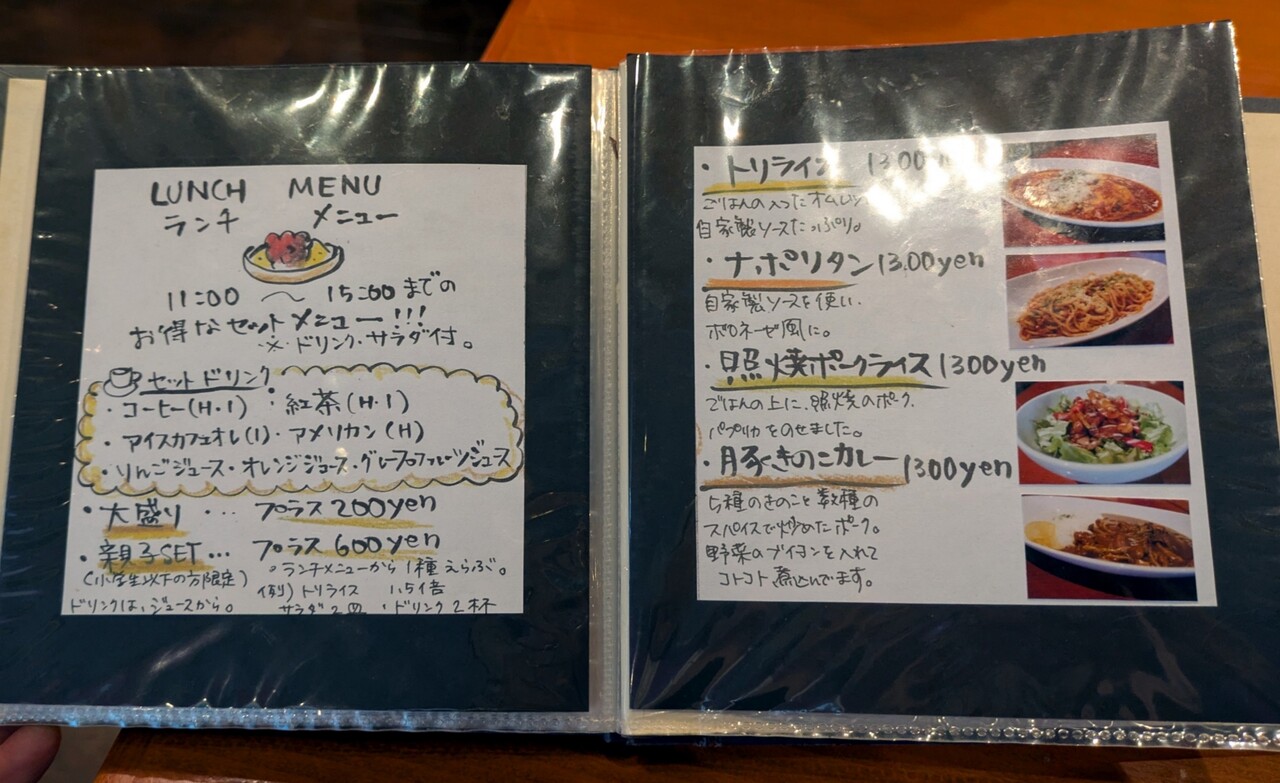 LUNCH MENU
ランチ メニュー
11:00 〜 15:00までの
お得なセットメニュー!!!
※ドリンク・サラダ付。
セットドリンク
・コーヒー(H・I) ・紅茶(H・I)
・アイスカフェオレ(I)・アメリカン(H)
・りんごジュース・オレンジジュース・グレープフルーツジュース
・大盛り ・・・ プラス200yen
・親子SET・・・ プラス600yen
(小学生以下の方限定)
。ランチメニューから1種えらぶ。
例) トリライス 1.5倍
ドリンクは、ジュースから。
サラダ2皿 ・ドリンク2杯
・トリライス 1300
ごはんの入ったオムレツ
自家製ソースたっぷり。
・ナポリタン 1300yen
自家製ソースを使い、
ボロネーゼ風に。
・照焼ポークライス 1300yen
ごはんの上に、照焼のポーク、
パプリカをのせました。
・豚きのこカレー 1300yen
5種のきのこと数種の
スパイスで炒めたポーク。
野菜のブイヨンを入れて
コトコト煮込んでます。